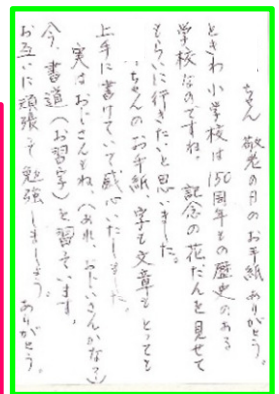 ちゃん 敬老の日のお手紙ありがとう。
ときわ小学校は150周年もの歴史のある
学校なのですね。記念の花だんを見せて
もらいに行きたいと思いました。
ちゃんのお手紙、字も文章もとっても
上手に書けていて感心いたしました。
実はおじさんもね、(あれ、おじいさんかな?)
今、書道(お習字)を習っています。
お互いに頑張って勉強しましょう。ありがとう。